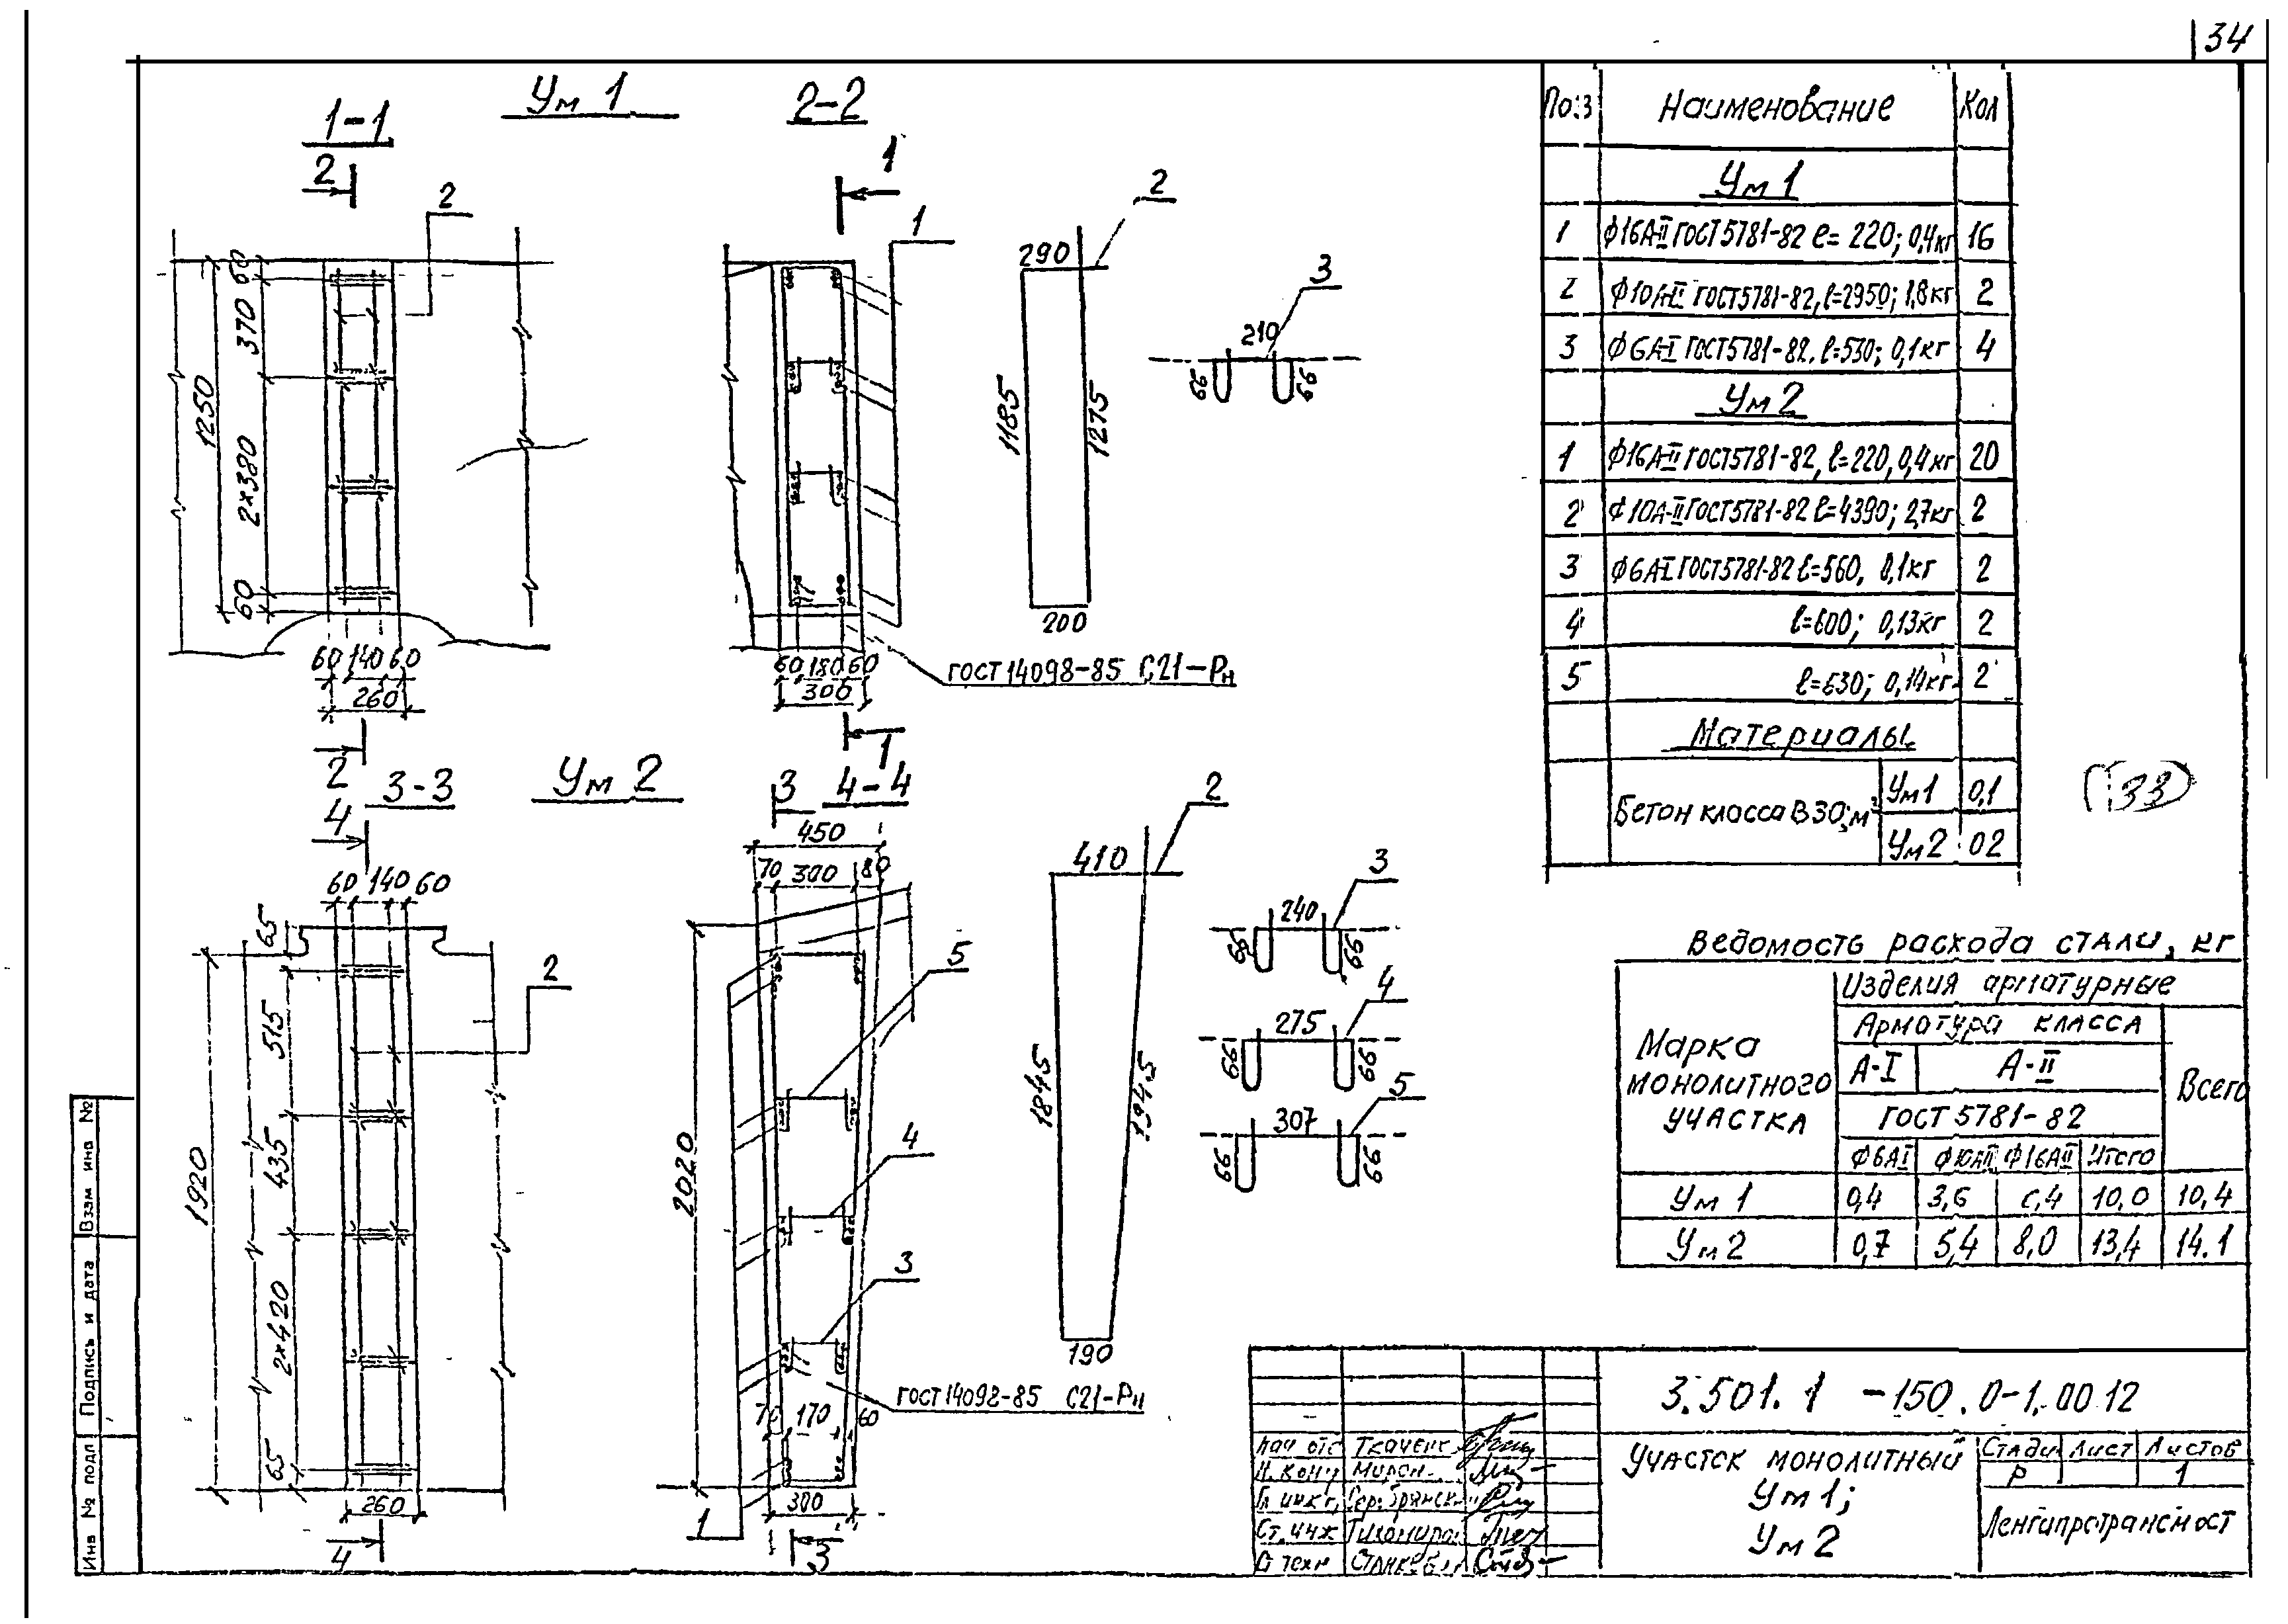 34
Ум 1
1-1
2-2
2
2
1
1
2
3
60
370
1250
2×380
60
60 140 60
260
2
290
1185
1275
200
210
66
66
60 180 60
300
1
ГОСТ 14098-85 С21-Рн
Ум 2
3-3
4
3
4-4
60 140 60
65
1920
515
435
2×420
65
260
4
2
450
70 300 80
2020
5
4
3
ГОСТ 14098-85 С21-Рн
70 170 60
300
1
3
2
410
1845
1945
190
3
240
66
66
4
275
66
66
5
307
66
66
Поз Наименование Кол
Ум 1
1 Ф16А-II ГОСТ 5781-82 ℓ=220; 0,4кг 16
2 Ф10А-II ГОСТ 5781-82, ℓ=2950; 1,8кг 2
3 Ф6А-I ГОСТ 5781-82. ℓ=530; 0,1кг 4
Ум 2
1 Ф16А-II ГОСТ 5781-82, ℓ=220, 0,4кг 20
2 Ф10А-II ГОСТ 5781-82 ℓ=4390; 2,7кг 2
3 Ф6А-I ГОСТ 5781-82 ℓ=560, 0,1кг 2
4 ℓ=600; 0,13кг 2
5 ℓ=630; 0,14кг 2
Материалы
Бетон класса В30, м³ Ум1 0,1
Ум2 02
(33)
Ведомость расхода стали, кг
Марка монолитного участка
Изделия арматурные
Арматура класса
А-I А-II
Всего
ГОСТ 5781-82
Ф6АI Ф10АII Ф16АII Итого
Ум 1 0,4 3,6 6,4 10,0 10,4
Ум 2 0,7 5,4 8,0 13,4 14.1
3.501.1-150.0-1.0012
Нач отс Ткаченк
Н. конт Мирон
Гл инж
Ст. инж Тихомиров
Ст техн
Участок монолитный
Ум 1;
Ум 2
Стади Лист Листов
Р 1
Ленгипротрансмост
Инв № подл Подпись и дата Взам инв №